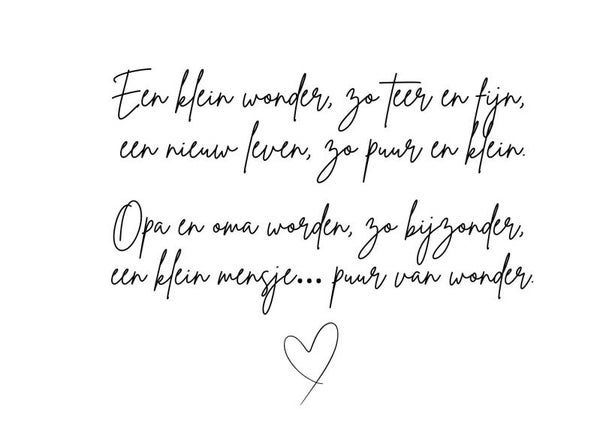 Een klein wonder, zo teer en fijn,
een nieuw leven, zo puur en klein.
Opa en oma worden, zo bijzonder,
een klein mensje... puur van wonder.